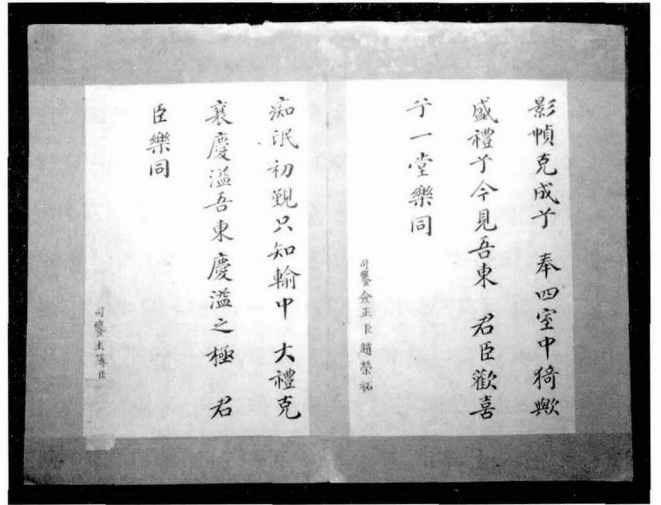 影幀克成于 奉四室中猗歟
盛禮于今見吾東 君臣歡喜
于一堂樂同
司饔僉正臣趙榮祏
痴氓初覩只知輸中 大禮克
襄慶溢吾東慶溢之極 君
臣樂同
司饔主簿臣